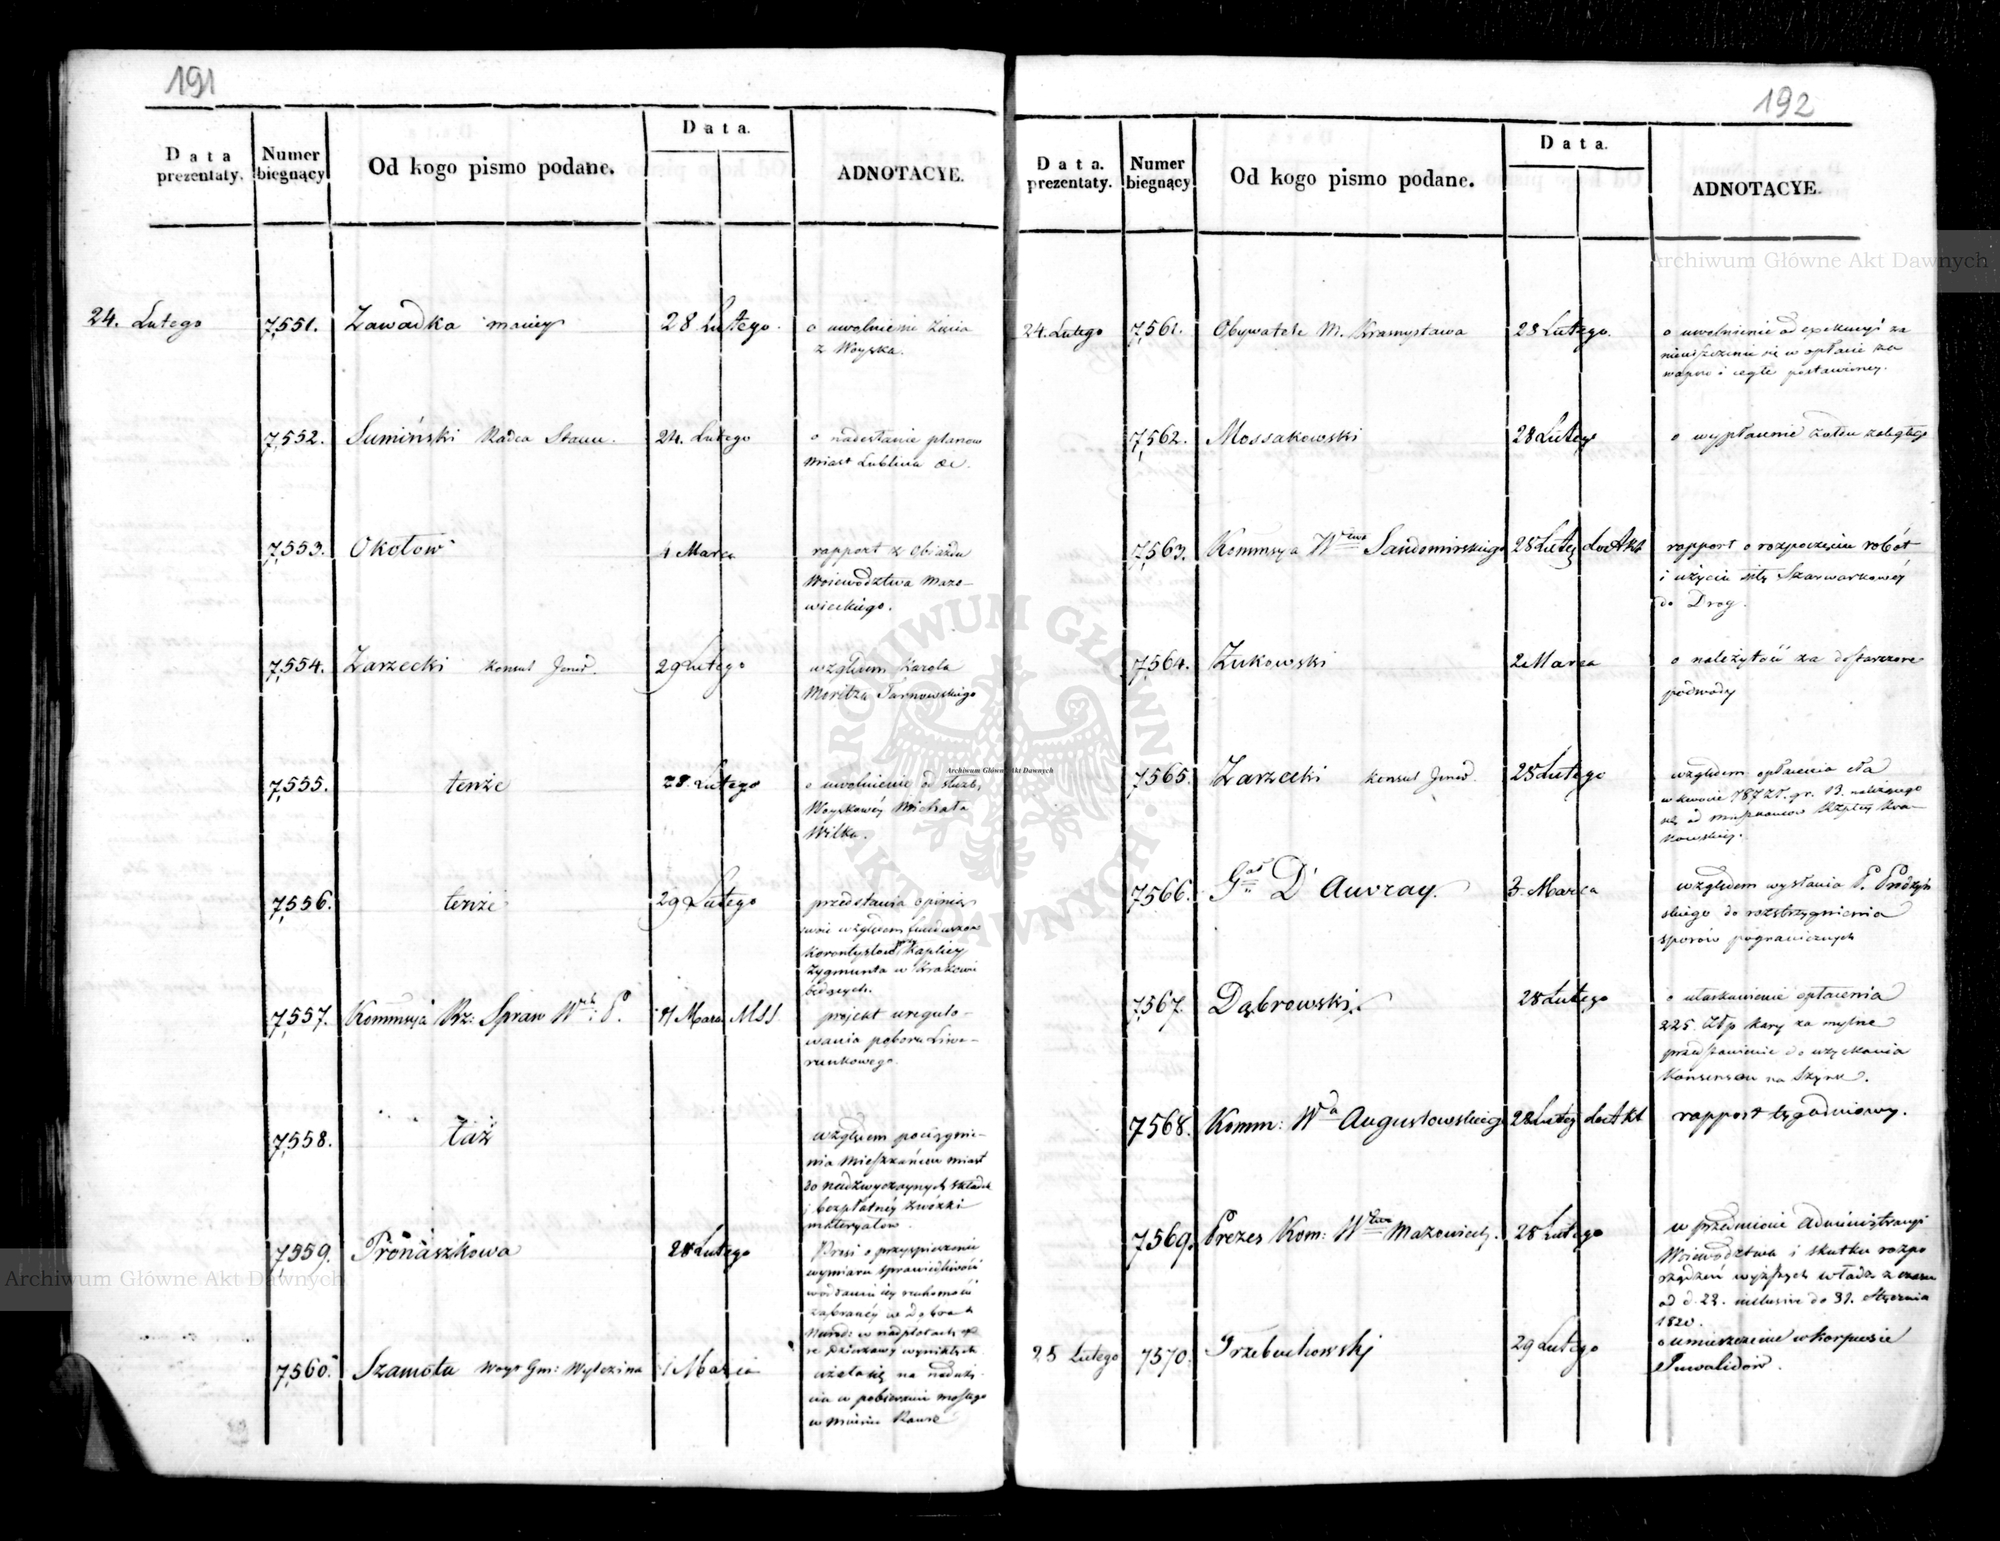 191
Data prezentaty.
Numer biegnący
Od kogo pismo podane.
Data.
ADNOTACYE.
24. Lutego
7,551.
Zawadka Maciey
28 Lutego.
o uwolnienie Zięcia
z Woyska.
7,552.
Sumiński Radca Stanu.
24. Lutego
o nadesłanie planow
miast Lublina &c.
7,553.
Okołow
4 Marca
rapport z obiazdu
Województwa Mazo-
wieckiego.
7,554.
Zarzecki Konsul Jener.
29 Lutego
względem Karola
Moritza Tarnowskiego
7,555.
tenże
28. Lutego
o uwolnienie od służb.
Woyskowéy Michała
Wilka.
7,556.
tenże
29 Lutego
przedstawia opinią
swoie względem funduszow
Kaplicy
Zygmunta w Krakowie
będących.
7,557.
Kommissya Rz: Spraw W: P.
Marca MSS.
projekt uregulo-
wania poboru Liwe-
runkowego.
7,558.
Taż
względem pociągnie-
nia Mieszkańców miast
do nadzwyczaynych składek
i bezpłatnéy zwózki
materyałow.
7,559.
Pronaszkowa
28 Lutego
Prosi o przyspieszenie
wymiaru sprawiedliwości
w oddaniu iéy ruchomości
zabranéy w dobrach
Narod: w nadpłatach
ze Dzierżawy wynikłych
7,560.
Szamota Woyt Gm: Wylezina
1 Marca
użala się na naduży-
cia w pobieraniu mostego
w mieście Rawie
192
Data. prezentaty.
Numer biegnący
Od kogo pismo podane.
Data.
ADNOTACYE.
24. Lutego
7,561.
Obywatele M. Krasnystawa
28 Lutego.
o uwolnienie od exekucyi za
nieuiszczenie się w opłacie za
wapno i cegłe postawioney.
7,562.
Mossakowski
28 Lutego
o wypłacenie żołdu zaległego
7,563.
Kommsya Wztwa Sandomirskiego
28 Lutego do Akt
rapport o rozpoczęciu robót
i użyciu siły Szarwarkowéy
do Drog.
7,564.
Żukowski
2 Marca
o należytość za dostarczone
podwody
7,565.
Zarzecki Konsul Jener.
28 Lutego
względem opłacenia cła
w kwocie 787 Zł. gr. 13. należącego
się od mieszkańców Rzpltéy Kra-
kowskiéy.
7,566.
Gał D'Auvray.
3. Marca
względem wysłania P. Prądzyń
skiego do rozstrzygnienia
sporów pogranicznych
7,567.
Dąbrowski
28 Lutego
o utarkowanie opłacenia
225. Złp kary za mylne
przedstawienie do uzyskania
Konsensu na Szynk.
7,568.
Komm: Wda Augustowskiego
28 Lutego do Akt
rapport tygodniowy.
7,569.
Prezes Kom: Wztwa Mazowieck.
28 Lutego
w przedmiocie Administracyi
Województwa i skutku rozpo
rządzeń wyższych władz z czasu
od d. 22. inclusive do 31. Stycznia
1820.
25 Lutego
7,570.
Trzebuchowski
29 Lutego
o umieszczenie w korpusie
Inwalidów.
Archiwum Główne Akt Dawnych
Archiwum Główne Akt Dawnych
Archiwum Główne Akt Dawnych
ARCHIWUM GŁÓWNE AKT DAWNYCH